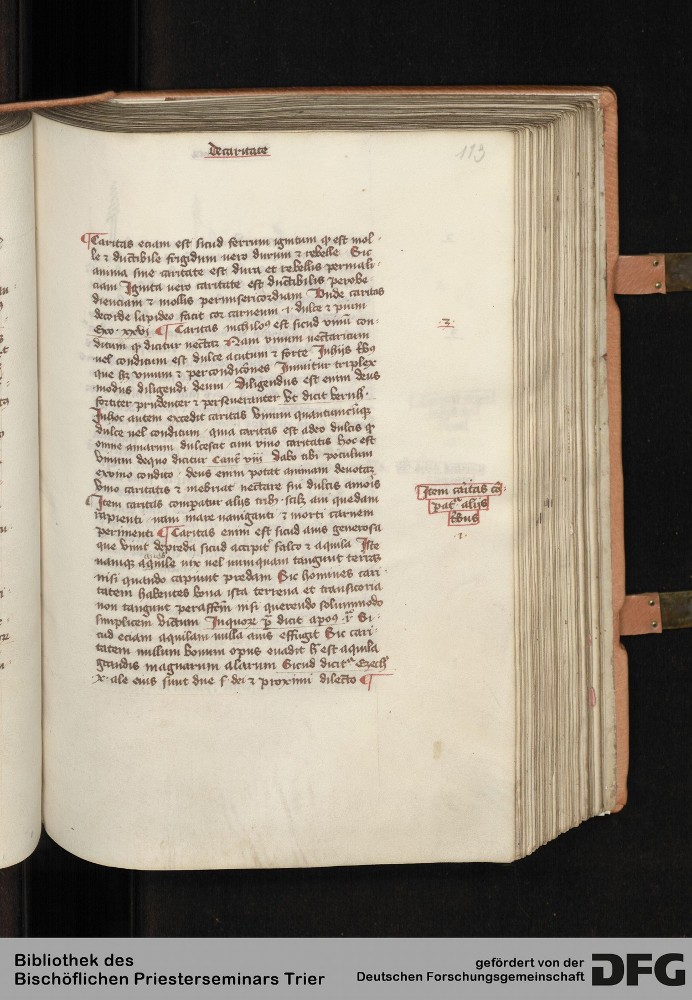 De caritate
113
Caritas eciam est sicud ferrum ignitum qr est mol-
le ⁊ ductibile frigidum uero durum ⁊ rebelle Sic
anima sine caritate est dura et rebellis per mali-
ciam Ignita uero caritate est ductibilis per obe-
dienciam ⁊ mollis per misericordiam Unde caritas
de corde lapideo facit cor carneum .i. dulce ⁊ pium
xxvi ¶ Caritas nichilo9 est sicud vinū con-
ditum qr dicitur nectar Nam vinum nectaricum
uel conditum est dulce acutum ⁊ forte In hijs tb9
que hz vinum ⁊ per condicōnes Innuitur triplex
modus diligendi deum Diligendus est enim deus
fortiter prudenter ⁊ perseueranter Vt dicit bernh.
In hoc autem excedit caritas vinum quantumcūqz
dulce uel conditum quia caritas est adeo dulcis qr
omne amarum dulcescit cum vino caritatis hoc est
vinum de quo dicitur Cant̄ viii dabo tibi poculum
ex vino condito. deus enim potat animam deuotaz
vino caritatis ⁊ inebriat nectare sui dulcis amoris
¶ Item caritas comparatur alijs trib9. scilz aui quedam
rapienti nam mare nauiganti ⁊ morti carnem
perimenti ¶ Caritas enim est sicud auis generosa
que viuit de preda sicud accipitr falco ⁊ aquila Iste
namqz aues aquile vix uel numquam tangunt terraz
nisi quando capiunt predam Sic homines cari-
tatem habentes bona ista terrena et transitoria
non tangunt per affcm̄ nisi querendo solummodo
simplicem victum
cud eciam aquilam nulla auis effugit Sic cari-
tatem nullum bonum opus euadit hec est aquila
grandis magnarum alarum Sicud dicitr Ezech
x. ale eius sunt due s. dei ⁊ proximi dilectō ¶
.3.
Item caritas cō-
patr alijs
tbus
.1.
Bibliothek des
Bischöflichen Priesterseminars Trier
gefördert von der
Deutschen Forschungsgemeinschaft
DFG